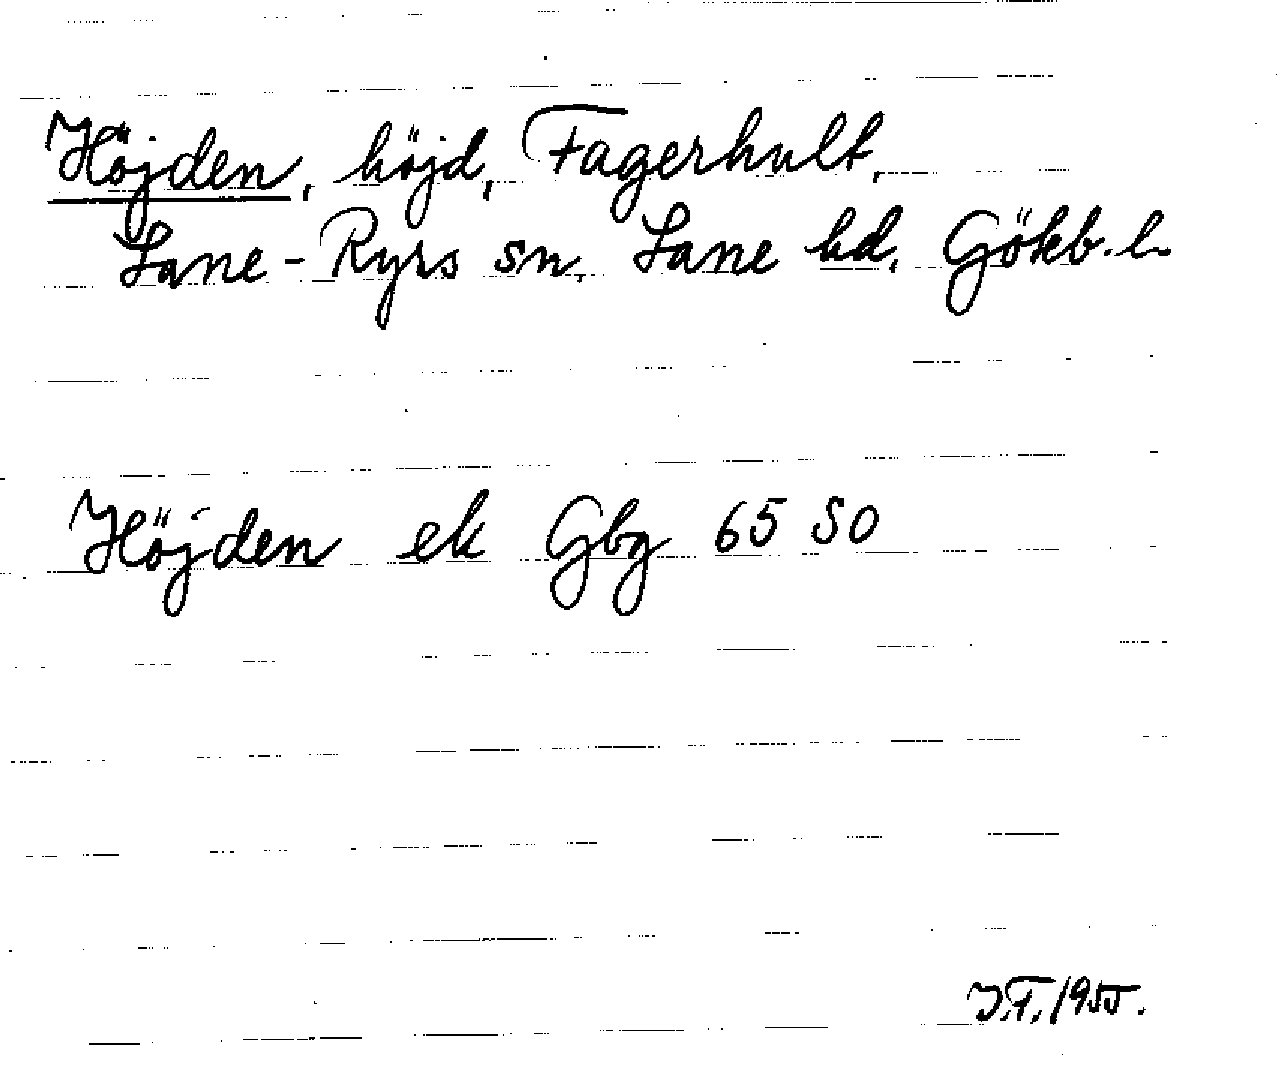 Höjden, höjd, Fagerhult,
Lane-Ryrs sn. Lane hd. Gökb. l.
Höjden ek Gbg 65 SO
J.T. 1955.